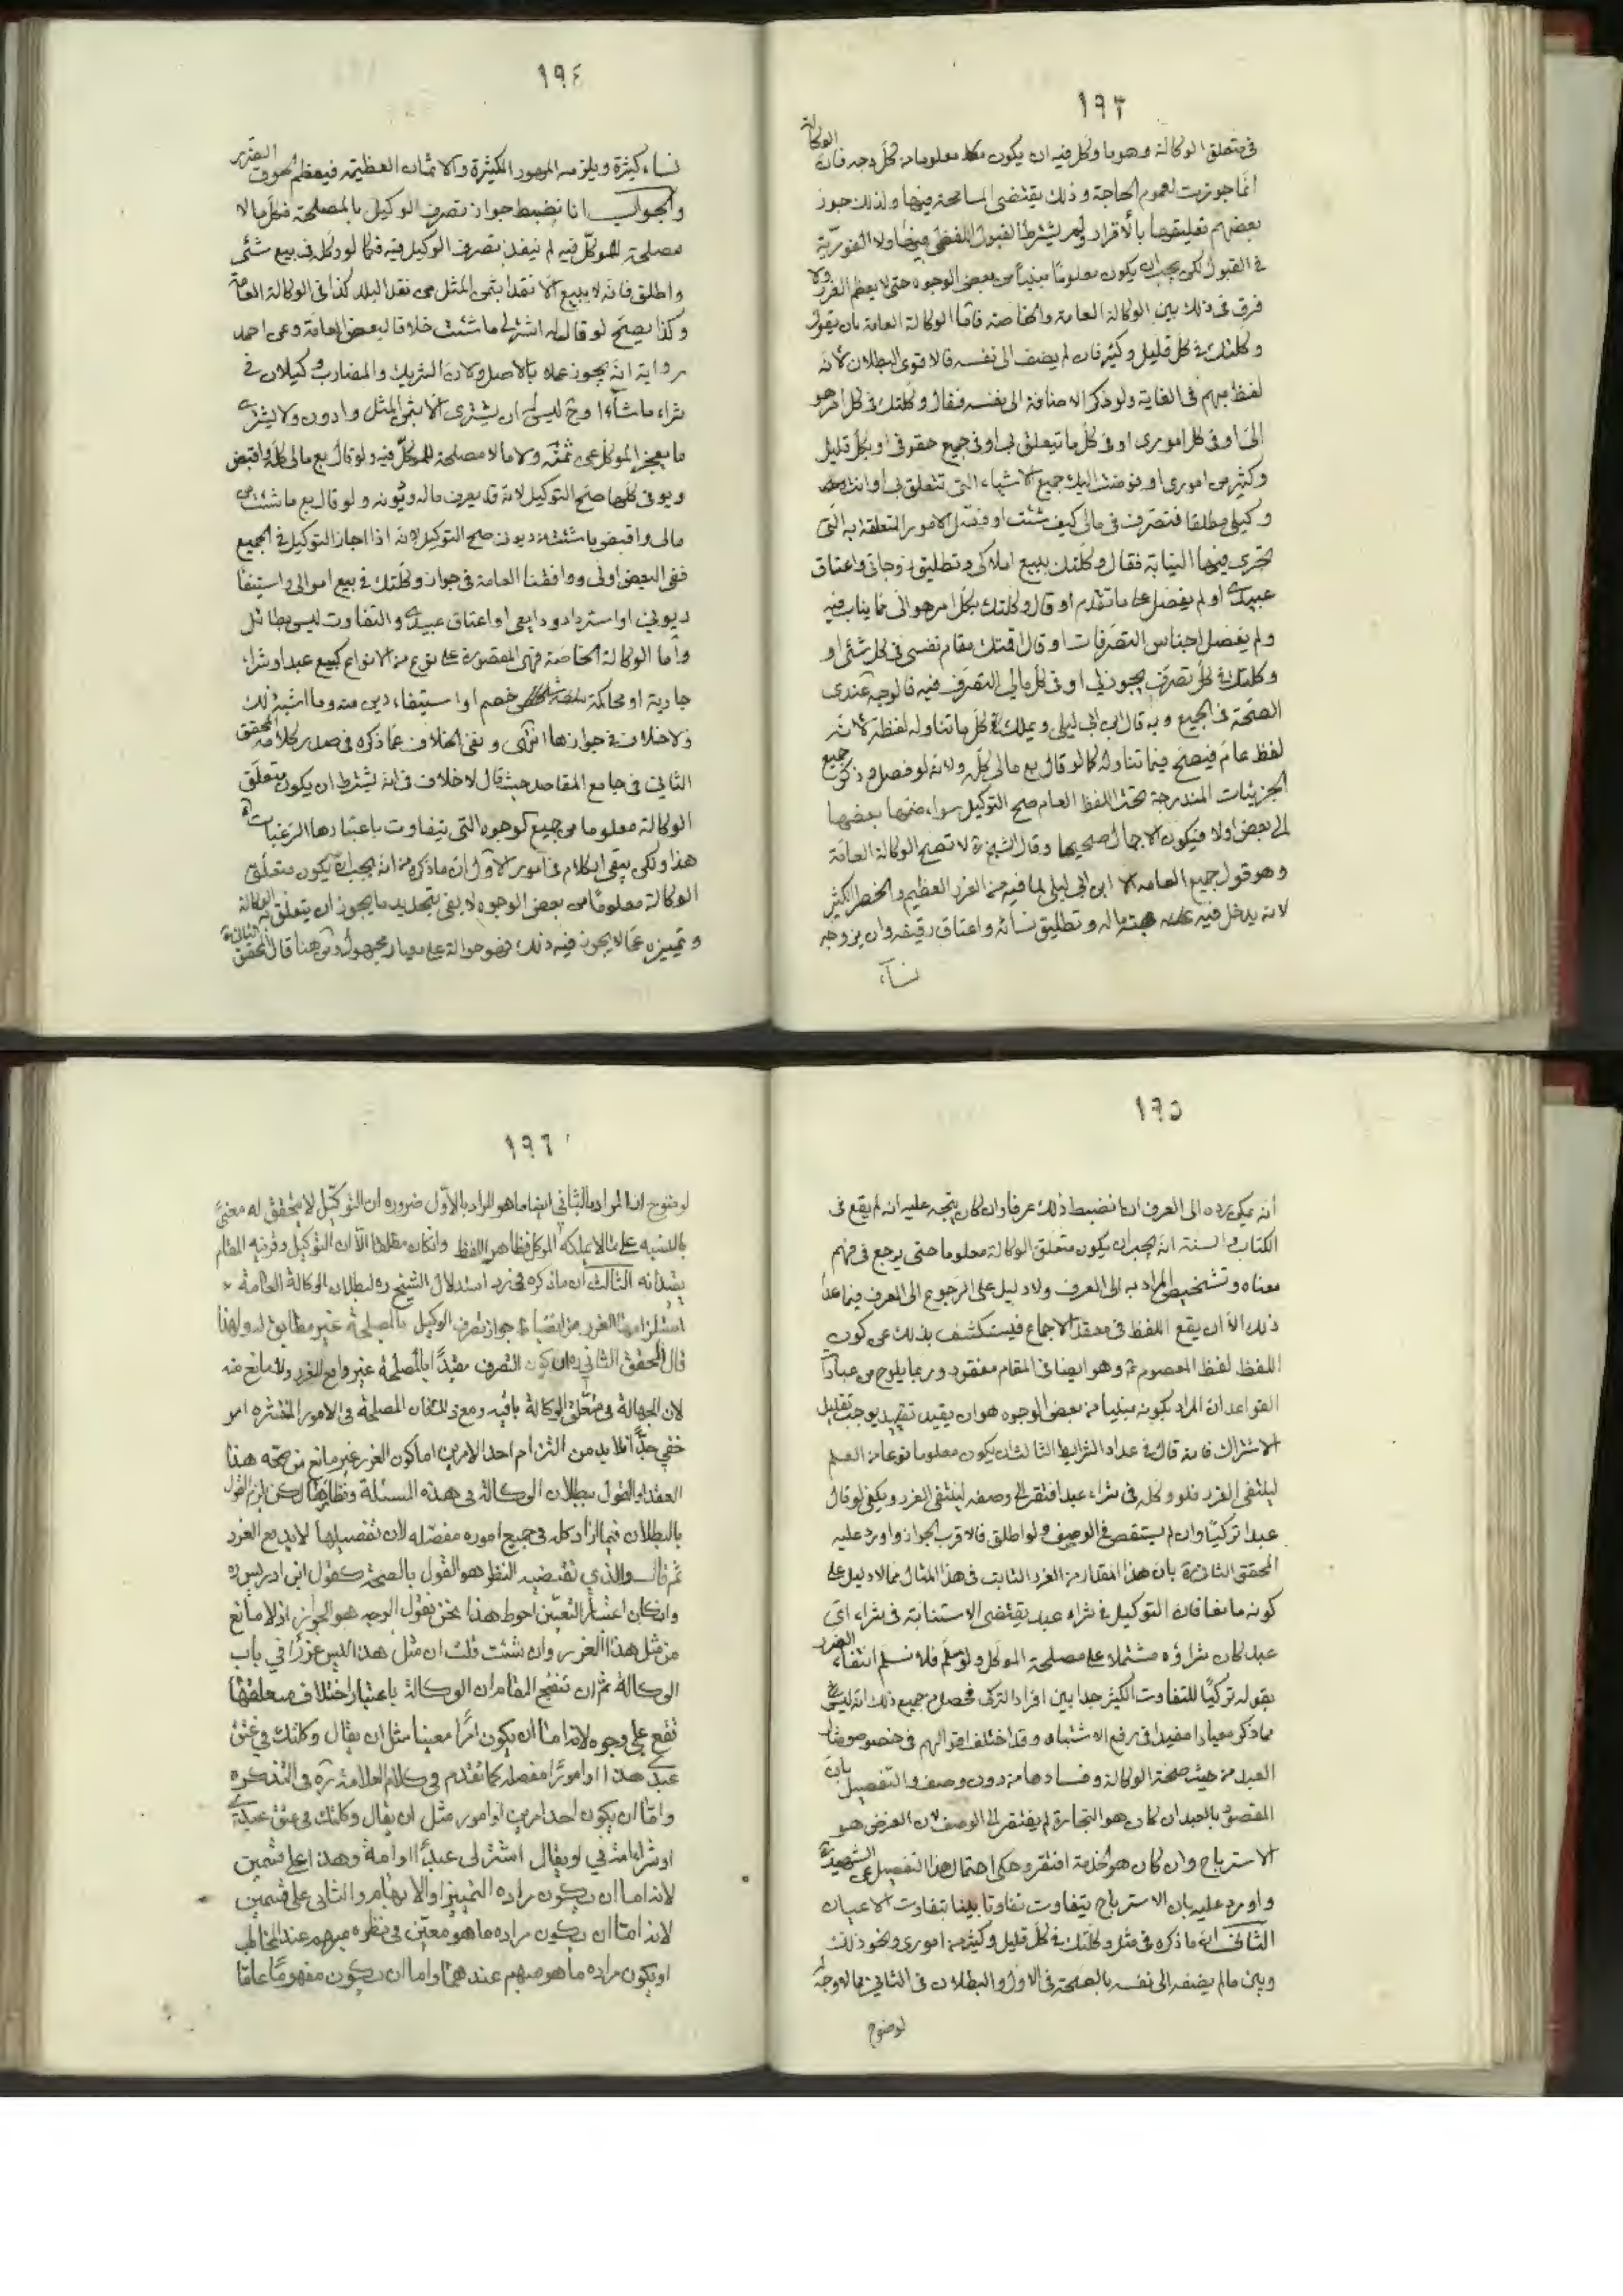 ١٩٣
في متعلق الوكالة وهو ما وكل فيه ان يكون معلوما من كل وجه فان الوكالة
انما جوزت لعموم الحاجة وذلك يقتضى المسامحة فيها ولذلك جوز
بعضهم تعليقها بالأقرار ولم يشترط القبول اللفظى فيها ولا الفورية
في القبول لكن يجب ان يكون معلوما مبينا من بعض الوجوه حتى لا يعظم الغرر ولا
فرق في ذلك بين الوكالة العامة والخاصة فاما الوكالة العامة بان يقول
وكلتك في كل قليل وكثير فان لم يضف الى نفسه فالاقوى البطلان لانه
لفظ مبهم في الغاية ولو ذكر الاضافة الى نفسه فقال وكلتك في كل امر هو
الىّ او في كل امورى او في كل ما يتعلق بى او في جميع حقوقى او بكل قليل
وكثير من امورى او فوضت اليك جميع الاشياء التى تتعلق بى او انت
وكيلى مطلقا فتصرف في مالى كيف شئت او فصّل الامور المتعلقة به التى
تجرى فيها النيابة فقال وكلتك ببيع املاكى وتطليق زوجاتى واعتاق
عبيدى او لم يفصل على ما تقدم او قال وكلتك بكل امر هو الى مما يناب فيه
ولم يفصل اجناس التصرفات او قال اقمتك مقام نفسى في كل شئ او
وكلتك في كل تصرف يجوز لى او في كل مالى التصرف فيه فالوجه عندى
الصحة في الجميع وبه قال ابن ابى ليلى ويملك كل ما تناوله لفظه لانه
لفظ عام فيصح فيما تناوله كما لو قال بع مالى كله ولانه لو فصل وذكر جميع
الجزئيات المندرجة تحت اللفظ العام صح التوكيل سواء ضمها بعضها
الى بعض اولا فيكون الاجمال صحيحا وقال الشيخ ره لا تصح الوكالة العامة
وهو قول جميع العامه الا ابن ابى ليلى لما فيه من الغرر العظيم والخطر الكثير
لانه يدخل فيه هبة ماله وتطليق نسائه واعتاق رقيقه وان يزوجه
نساء
١٩٤
نساء كثيرة ويلزمه المهور الكثيرة والاثمان العظيمه فيعظم الضرر
والجواب انا نضبط جواز تصرف الوكيل بالمصلحة فكل ما لا
مصلحة للموكل فيه لم ينفذ تصرف الوكيل فيه كما لو وكله في بيع شئ
واطلق فانه لا يبيع الا نقدا بثمن المثل من نقد البلد كذا في الوكالة العامة
وكذا يصح لو قال له اشتر لى ما شئت خلافا لبعض العامة وعن احمد
رواية انه يجوز عملا بالاصل ولان الشريك والمضارب وكيلان في
شراء ما شاءا وح ليس له ان يشترى الا بثمن المثل وادون ولا يشترى
ما يعجز الموكل عن ثمنه ولا ما لا مصلحة للموكل فيه ولو قال بع مالى كله واقبض
ديونى كلها صح التوكيل لانه قد يعرف ماله وديونه ولو قال بع ما شئت من
مالى واقبض ما شئت من ديونى صح التوكيل لانه اذا جاز التوكيل في الجميع
ففي البعض اولى ووافقنا العامة في جواز وكلتك في بيع اموالى واستيفاء
ديونى او استرداد ودايعى او اعتاق عبيدى والتفاوت ليس بطائل
واما الوكالة الخاصة فهى المقصورة على نوع من الانواع كبيع عبد او شراء
جارية او محاكمة خصم او استيفاء دين منه وما اشبه ذلك
ولا خلاف في جوازها انتهى ونفى الخلاف عما ذكره في صدر كلامه المحقق
الثاني في جامع المقاصد حيث قال لا خلاف في انه يشترط ان يكون متعلق
الوكالة معلوما من جميع الوجوه التى يتفاوت باعتبارها الرغبات
هذا ولكن يبقى الكلام في امور الاول ان ما ذكره من انه يجب ان يكون متعلق
الوكالة معلوما من بعض الوجوه لا يفى بتحديد ما يجوز ان يتعلق به الوكالة
وتمييزه عما لا يجوز فيه ذلك فهو حوالة على معيار مجهول ومن هنا قال المحقق الثاني
١٩٥
انه يمكن رده الى العرف ان انضبط ذلك عرفا وان كان يتجه عليه انه لم يقع في
الكتاب والسنة انه يجب ان يكون متعلق الوكالة معلوما حتى يرجع في فهم
معناه وتشخيص المراد به الى العرف ولا دليل على الرجوع الى العرف فيما عدا
ذلك الا ان يقع اللفظ في معقد الاجماع فيستكشف بذلك عن كون
اللفظ لفظ المعصوم ع وهو ايضا في المقام مفقود وربما يلوح من عبارة
القواعد ان المراد بكونه مبنيا من بعض الوجوه هو ان يقيد بقيد يوجب تقليل
الاشتراك فانه قال في عداد الشرايط الثالث ان يكون معلوما نوعا من العلم
لينتفى الغرر فلو وكله في شراء عبد افتقر الى وصفه لينتفى الغرر ويكفى لو قال
عبدا تركيا وان لم يستقص في الوصف ولو اطلق فالاقرب الجواز واورد عليه
المحقق الثاني ره بان هذا المقدار من الغرر الثابت في هذا المثال مما لا دليل على
كونه مانعا فان التوكيل في شراء عبد يقتضى الاستنابة في شراء اى
عبد كان شراؤه مشتملا على مصلحة الموكل ولو سلم فلا نسلم انتفاء الغرر
بقوله تركيا للتفاوت الكثير جدا بين افراد التركى فحصل من جميع ذلك انه ليس في
ما ذكر معيارا مفيدا في رفع الاشتباه وقد اختلف اقوالهم في خصوص مثال
العبد من حيث صحة الوكالة وفسادها من دون وصف والتفصيل بان
المقصود بالعبد ان كان هو التجارة لم يفتقر الى الوصف لان الغرض هو
الاسترباح وان كان هو الخدمة افتقر وحكى احتمال هذا التفصيل عن الشهيد ره
واورد عليه بان الاسترباح يتفاوت تفاوتا بينا بتفاوت الاعيان
الثانى ان ما ذكره في مثل وكلتك في كل قليل وكثير من امورى ونحو ذلك
وبين ما لم يضفه الى نفسه بالصحة في الاول والبطلان في الثانى مما لا وجه له
لوضوح
١٩٦
لوضوح ان المراد بالثاني ايضا ما هو المراد بالاول ضروره ان التوكيل لا يتحقق له معنى
بالنسبه على ما لا يملكه الموكل فظاهر اللفظ وان كان مطلقا الا ان التوكيل وقرينه المقام
يقيدانه الثالث ان ما ذكره في رد استدلال الشيخ ره لبطلان الوكالة العامة
استلزامها الغرر من انضباط جواز تصرف الوكيل بالمصلحة غير مطابق له ولهذا
قال المحقق الثاني ره ان كون التصرف مقيدا بالمصلحة غير دافع للغرر ولا مانع منه
لان الجهالة في متعلق الوكالة باقيه ومع ذلك فان المصلحة في الامور المنتشره امر
خفي جدا فلا بد من التزام احد الامرين اما كون الغرر غير مانع من صحه هذا
العقد او القول ببطلان الوكالة في هذه المسئلة ونظايرها لكن يلزم القول
بالبطلان فيما اذا وكله في جميع اموره مفصله لان تفصيلها لا يدفع الغرر
ثم قال والذي يقتضيه النظر هو القول بالصحة كقول ابن ادريس ره
وان كان اعتبار التعيين احوط هذا نحن نقول الوجه هو الجواز اذ لا مانع
من مثل هذا الغرر وان شئت قلت ان مثل هذا ليس غررا في باب
الوكالة ثم ان تنقيح المقام ان الوكالة باعتبار اختلاف متعلقها
تقع على وجوه لانه اما ان يكون امرا معينا مثل ان يقال وكلتك في عتق
عبدى هذا او امورا مفصلة كما تقدم في كلام العلامة ره في التذكره
واما ان يكون احد امرين او امور مثل ان يقال وكلتك في عتق عبدى
او شراء امة لي او يقال اشتر لى عبدا او امة وهذا على قسمين
لانه اما ان يكون مراده التمييز او الابهام والثانى على قسمين
لانه اما ان يكون مراده ما هو معين في نظره مبهم عند المخاطب
او يكون مراده ما هو مبهم عندهما واما ان يكون مفهوما عاما